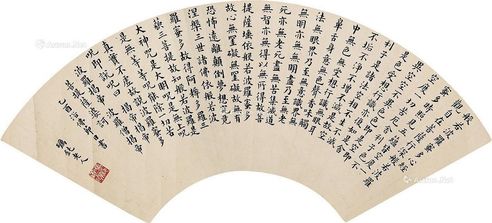 般若波羅蜜多心經
觀自在菩薩行深般若波羅
蜜多時照見五蘊皆
空度一切苦厄舍利子色不
異空空不異色色即是空空即是色
受想行識亦復如是舍
利子是諸法空相不生不滅
不垢不淨不增不減是故空
中無色無受想行識無眼耳
鼻舌身意無色聲香味觸
法無眼界乃至無意識界
無無明亦無無明盡乃至無老
死亦無老死盡無苦集滅道
無智亦無得以無所得故菩
提薩埵依般若波羅蜜多
故心無罣礙無罣礙故無有
恐怖遠離顛倒夢想究竟
涅槃三世諸佛依般若波
羅蜜多故得阿耨多羅三
藐三菩提故知般若波羅蜜多
是大神咒是大明咒是無上咒
是無等等咒能除一切苦
真實不虛故說般若波羅蜜多
咒即說咒曰揭帝揭帝
波羅揭帝波羅僧揭帝
菩提薩婆訶